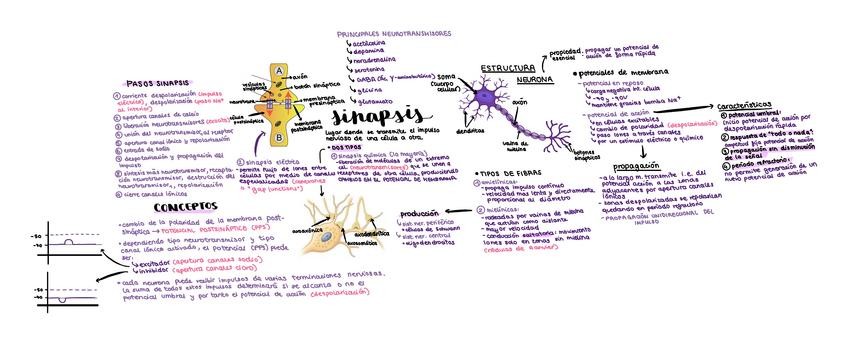 PRINCIPALES NEUROTRANSMISORES
acetilcolina
dopamina
noradrenalina
serotonina
GABA (Ác. γ-aminobutírico)
glicina
glutamato
PASOS SINAPSIS
① corriente despolarización (impulso
eléctrico), despolarización (paso Na⁺
al interior)
② apertura canales de calcio
③ liberación neurotransmisores
④ unión del neurotransmisor al receptor
⑤ apertura canal iónico y repolarización
⑥ entrada de sodio
⑦ despolarización y propagación del
impulso
⑧ sintesis más neurotransmisor, recapta-
ción neurotransmisor, destrucción del
neurotransmisor, repolarización
⑨ cierre canales iónicos
A
B
axón
vesículas
sinápticas
botón sináptico
membrana
presináptica
membrana
postsináptica
sinapsis
lugar donde se transmite el impulso
nervioso de una célula a otra.
DOS TIPOS
① sinapsis química (la mayoría)
② sinapsis eléctrica
"gap junctions"
ESTRUCTURA
NEURONA
soma
(cuerpo
celular)
dendritas
axón
vaina de
mielina
botones
sinápticos
propiedad
esencial:
propagar un potencial de
acción de forma rápida
potenciales de membrana
potencial en reposo
carga negativa int. célula
mantiene gracias bomba Na⁺
potencial de acción
en células excitables
cambio de polaridad (despolarización)
paso iones a través canales
por un estímulo eléctrico o químico
Características
① potencial umbral:
inicio potencial de acción por
despolarización rápida
② respuesta de "todo o nada":
amplitud fija potencial de acción
③ propagación sin disminución
de la señal
④ período refractario:
no permite generación de un
nuevo potencial de acción
propagación
a lo largo m. transmite i.e. del
potencial acción a las zonas
adyacentes por apertura canales
iónicos
zonas despolarizadas se repolarizan
quedando en período refractario
PROPAGACIÓN UNIDIRECCIONAL DEL
IMPULSO
TIPOS DE FIBRAS
① amielínicas:
propaga impulso continuo
velocidad mas lenta y directamente
proporcional al diámetro
② mielínicas:
rodeadas por vainas de mielina
que actúan como aislante
mayor velocidad
conducción saltatoria: movimiento
iones solo en zonas sin mielina
(nódulos de Ranvier)
producción
sist. ner. periférico
células de schwann
sist. ner. central
oligodendrocitos
axoaxónica
axodendrítica
axosomática
CONCEPTOS
cambio de la polaridad de la membrana post-
sináptica → POTENCIAL POSTSINÁPTICO (PPS)
dependiendo tipo neurotransmisor y tipo
canal iónico activado, el potencial (PPS) puede
ser:
excitador (apertura canales sodio)
inhibidor (apertura canales cloro)
cada neurona puede recibir impulsos de varias terminaciones nerviosas.
la suma de todos estos impulsos determinará si se alcanza o no el
potencial umbral y por tanto el potencial de acción (despolarización)
-50
-70
-50
-70